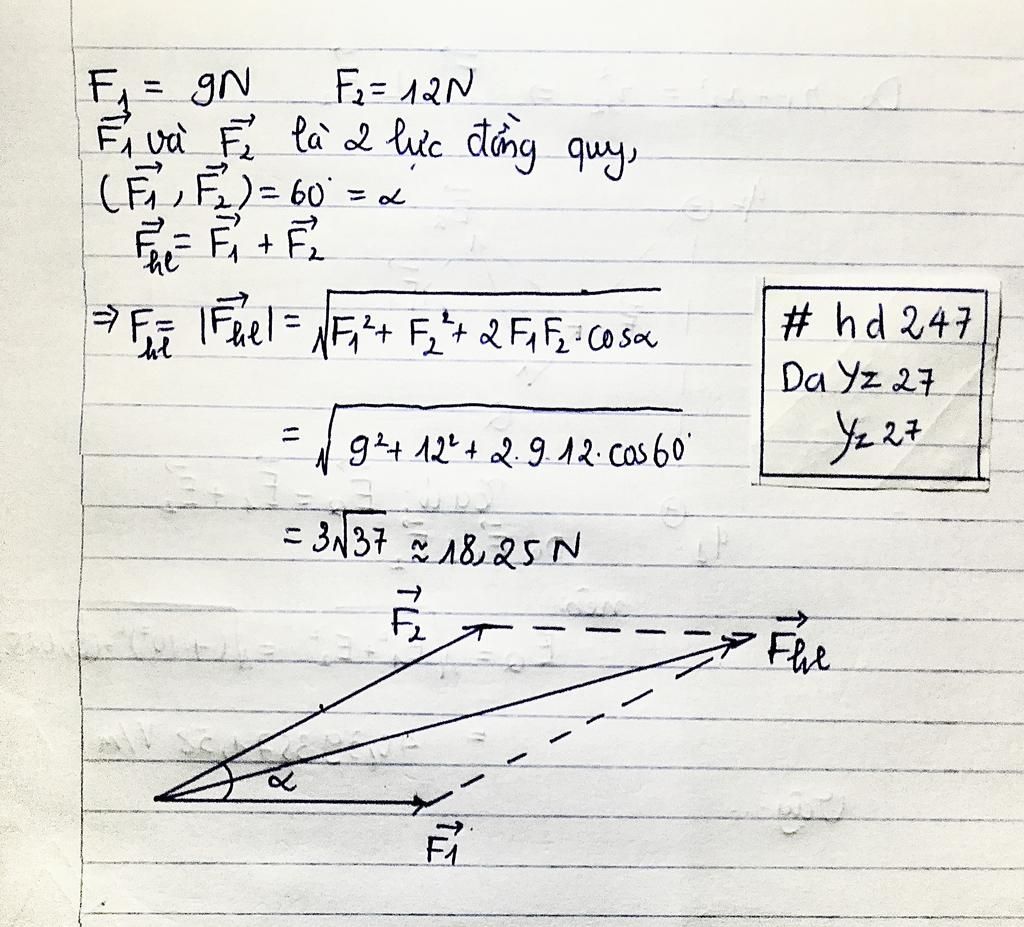 F₁ = 9N F₂ = 12N
F₁⃗ và F₂⃗ là 2 lực đồng quy,
(F₁⃗, F₂⃗) = 60° = α
F⃗hl = F₁⃗ + F₂⃗
⇒ Fhl = |F⃗hl| = √(F₁² + F₂² + 2F₁F₂.cosα)
= √(9² + 12² + 2.9.12.cos60°)
= 3√37 ≈ 18,25 N
# hd 247
Da Yz 27
Yz 27
F₂⃗
F⃗hl
α
F₁⃗